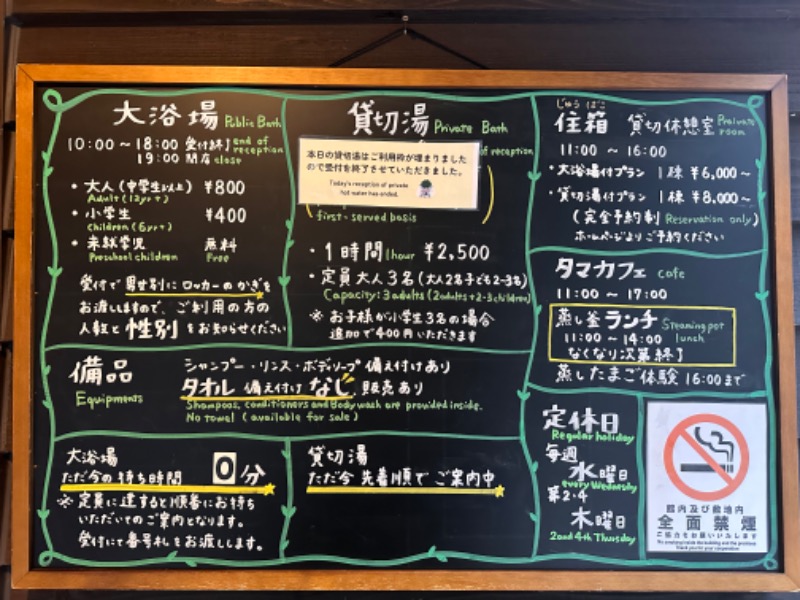 大浴場 Public Bath
10:00~18:00 受付終了 end of reception
19:00 閉店 close
・大人(中学生以上) ¥800
Adult (12yr+)
・小学生 ¥400
children (6yr+)
・未就学児 無料
Preschool children Free
受付で男女別にロッカーのかぎを
お渡ししますので、ご利用の方の
人数と性別をお知らせください
貸切湯 Private Bath
of reception
本日の貸切湯はご利用枠が埋まりました
ので受付を終了させていただきました。
Today's reception of private
hot water has ended.
first-served basis
・1時間 1hour ¥2,500
・定員大人3名(大人2名子ども2~3名)
Capacity:3adults(2adults+2-3children)
※お子様が小学生3名の場合
追加で400円いただきます
じゅうばこ
住箱 貸切休憩室 Praivate room
11:00 ~ 16:00
・大浴場付プラン 1棟 ¥6,000~
・貸切湯付プラン 1棟 ¥8,000~
(完全予約制 Reservation only)
ホームページよりご予約ください
タマカフェ cafe
11:00 ~ 17:00
蒸し釜ランチ Steaming pot lunch
11:00~14:00
なくなり次第終了
蒸したまご体験 16:00まで
備品 シャンプー・リンス・ボディソープ 備え付けあり
Equipments タオル 備え付けなし、販売あり
Shampoos, conditioners and Body wash are provided inside.
No towel (available for sale)
大浴場
ただ今の待ち時間 0分
※定員に達すると順番にお待ち
いただいてのご案内となります。
受付にて番号札をお渡しします。
貸切湯
ただ今 先着順で ご案内中
定休日
Regular holiday
毎週
水曜日
every Wednesday
第2・4
木曜日
2and 4th Thursday
館内及び敷地内
全面禁煙
ご協力をお願いいたします
No smoking inside the building and the premises.
Thank you for your cooperation.